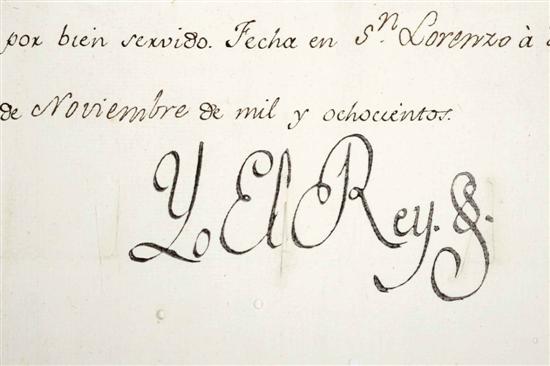 por bien servido. Fecha en Sn. Lorenzo à
de Noviembre de mil y ochocientos.
Yo El Rey.